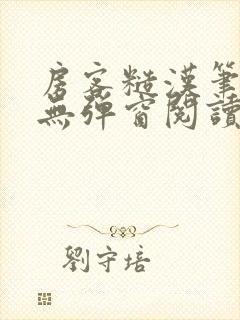 房客糙漢筆
無彈窗閱讀
劉守培